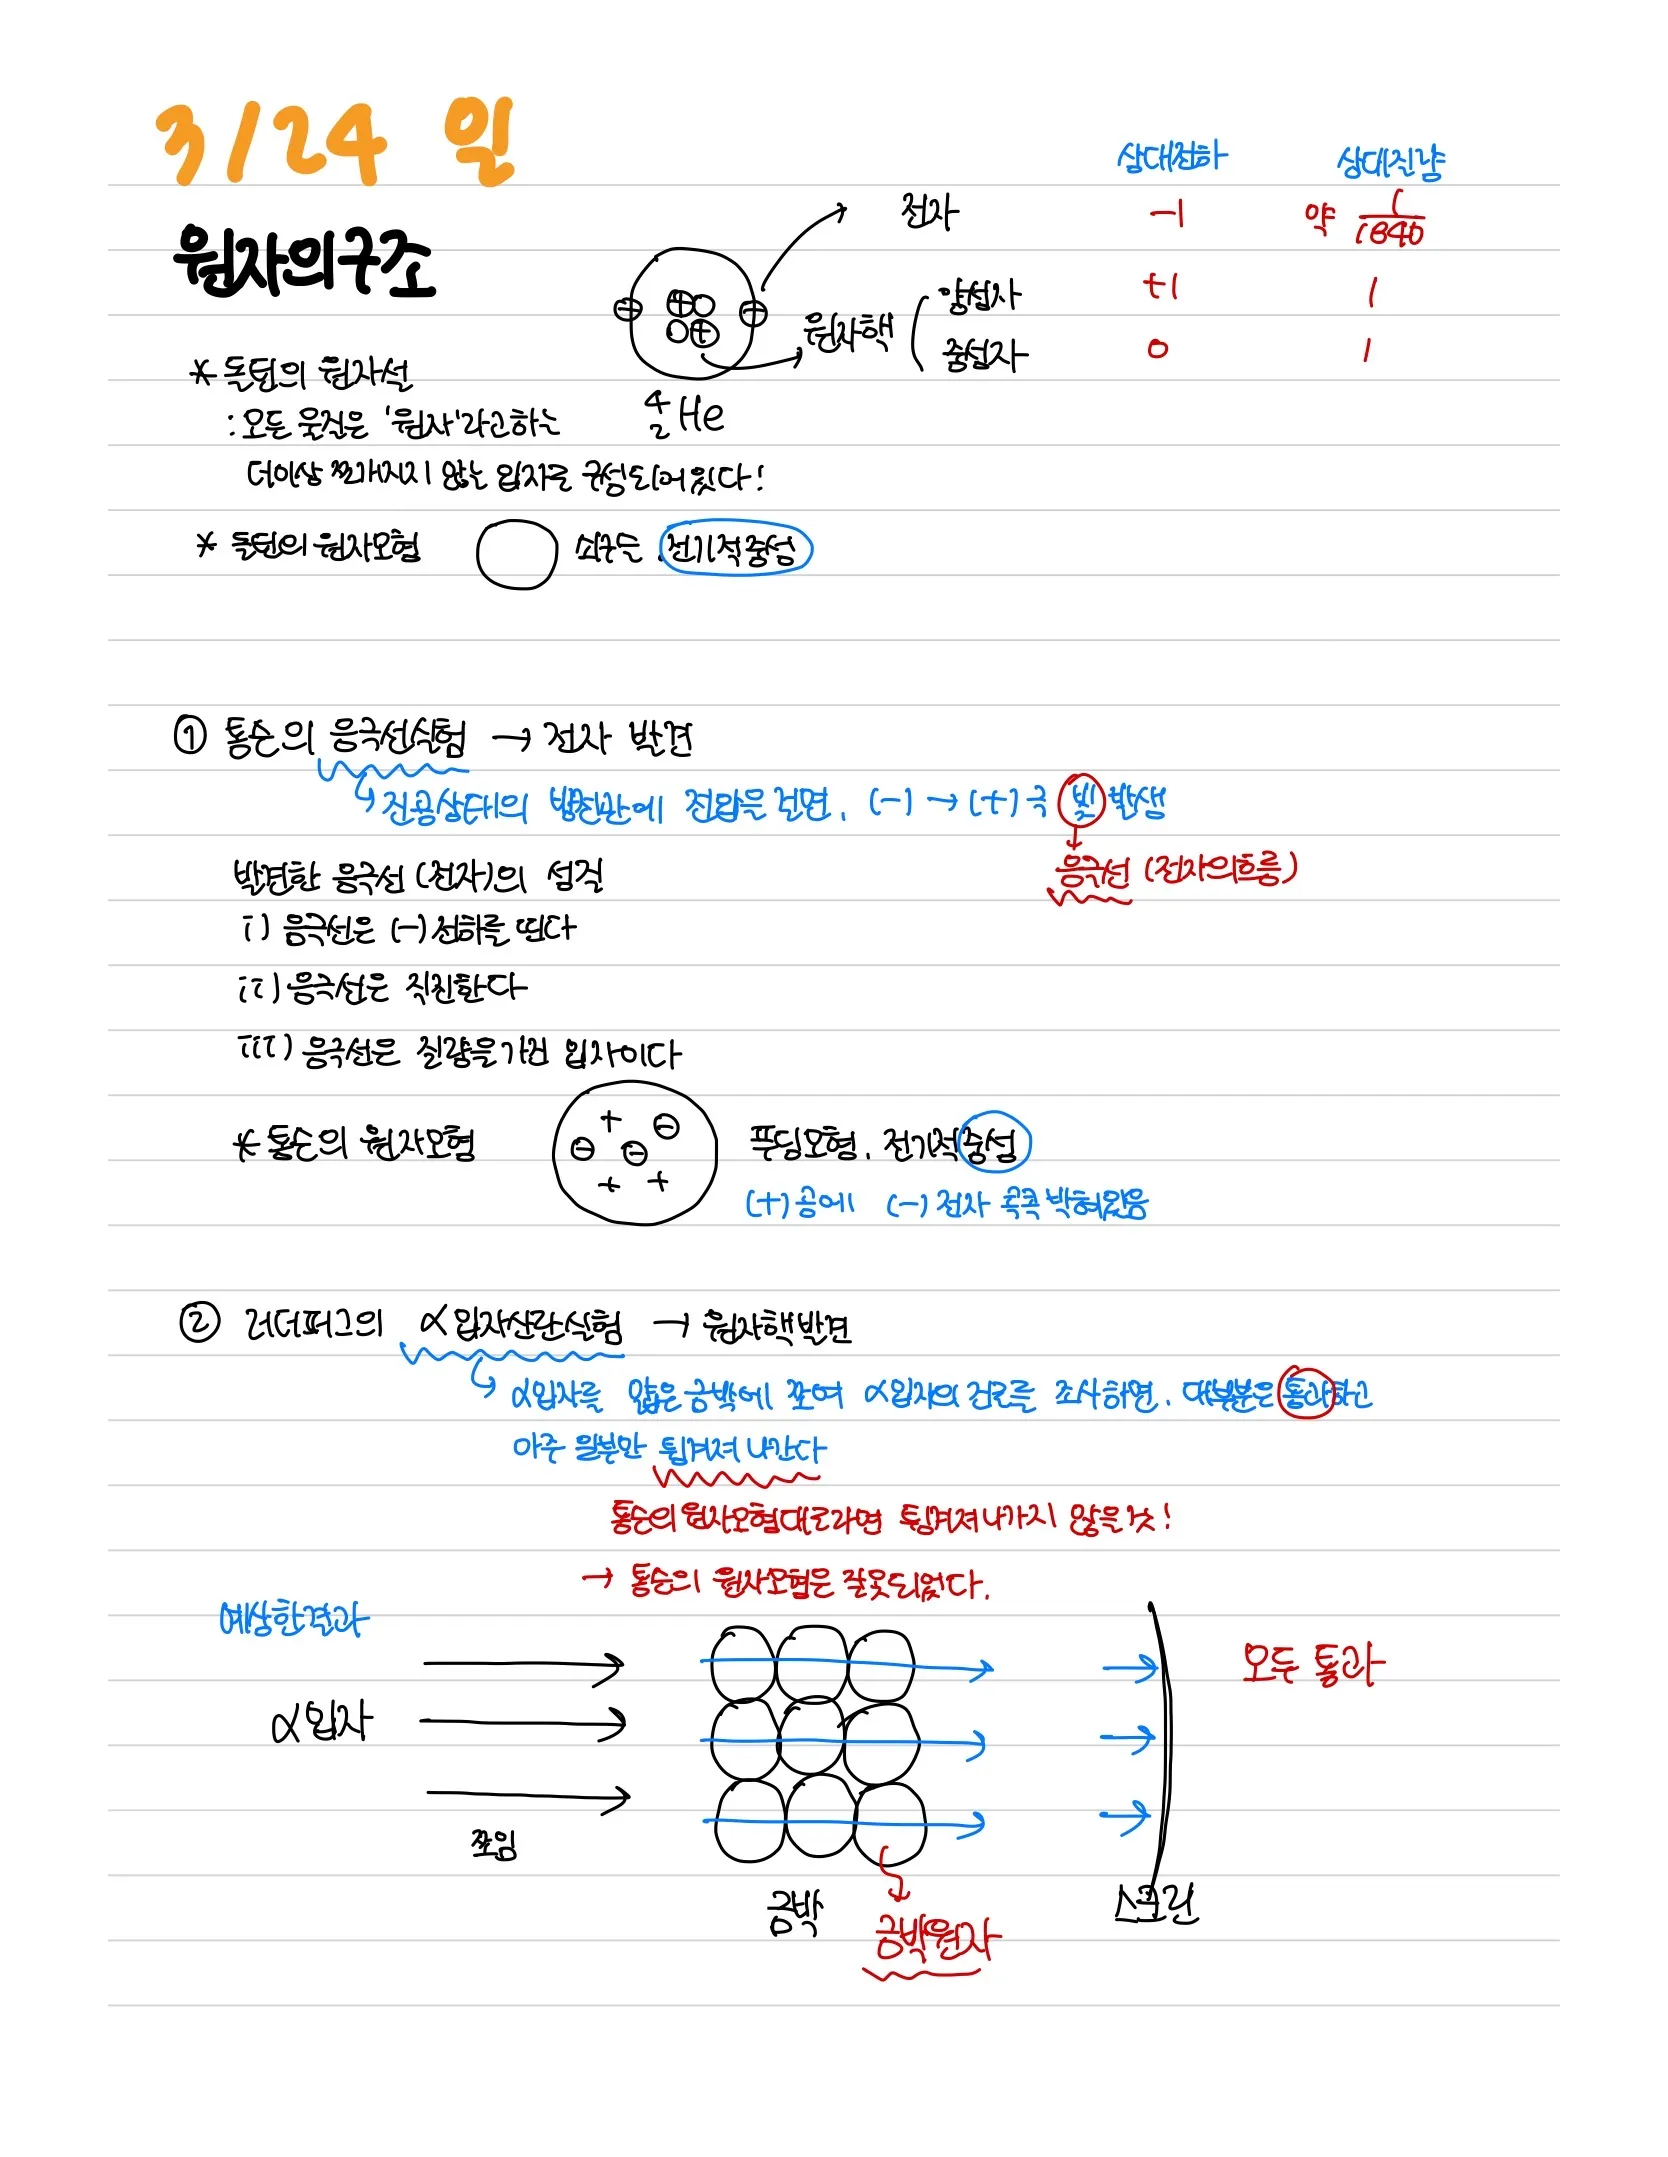 3/24 일
원자의구조
상대전하 상대질량
전자 -1 약 1/1840
원자핵 양성자 +1 1
중성자 0 1
4 2 He
* 돌턴의 원자설
: 모든 물질은 '원자'라고하는
더이상 쪼개지지 않는 입자로 구성되어있다!
* 돌턴의 원자모형 쇠구슬, 전기적중성
① 톰슨의 음극선실험 → 전자 발견
↳ 진공상태의 방전관에 전압을 걸면, (-) → (+)극 빛 발생
음극선 (전자의흐름)
발견한 음극선 (전자)의 성질
i) 음극선은 (-)전하를 띤다
ii) 음극선은 직진한다
iii) 음극선은 질량을가진 입자이다
* 톰슨의 원자모형 + - - - + + 푸딩모형, 전기적중성
(+)공에 (-)전자 콕콕 박혀있음
② 러더퍼드의 α입자산란실험 → 원자핵발견
↳ α입자를 얇은금박에 쪼여 α입자의 경로를 조사하면, 대부분은 통과하고
아주 일부만 튕겨져 나간다
톰슨의 원자모형대로라면 튕겨져나가지 않을것!
→ 톰슨의 원자모형은 잘못되었다.
예상한결과
α입자
쪼임
금박
금박원자
스크린
모두 통과